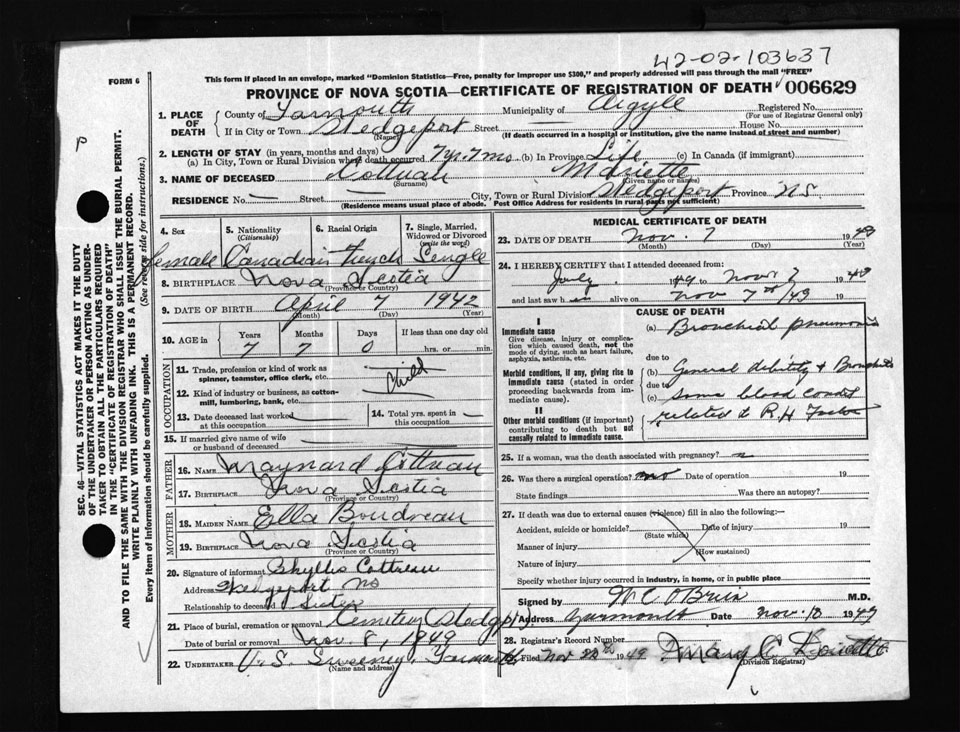 42-02-103637
FORM 6
This form if placed in an envelope, marked "Dominion Statistics—Free, penalty for improper use $300," and properly addressed will pass through the mail "FREE"
PROVINCE OF NOVA SCOTIA—CERTIFICATE OF REGISTRATION OF DEATH 006629
1. PLACE OF DEATH
County of Yarmouth Municipality of Argyle Registered No.
(For use of Registrar General only)
If in City or Town Wedgeport Street House No.
(Name) (If death occurred in a hospital or institution, give the name instead of street and number)
2. LENGTH OF STAY (in years, months and days)
(a) In City, Town or Rural Division where death occurred 7 yr. 7 mo (b) In Province Life (c) In Canada (if immigrant)
3. NAME OF DECEASED Cottreau Marietta
(Surname) (Given name or names)
RESIDENCE No. — Street — City, Town or Rural Division Wedgeport Province NS
(Residence means usual place of abode. Post Office Address for residents in rural parts not sufficient)
4. Sex 5. Nationality (Citizenship) 6. Racial Origin 7. Single, Married, Widowed or Divorced (write the word)
Female Canadian French Single
8. BIRTHPLACE Nova Scotia
(Province or Country)
9. DATE OF BIRTH April 7 1942
(Month) (Day) (Year)
10. AGE in Years Months Days If less than one day old
7 7 0 hrs. or min.
OCCUPATION
11. Trade, profession or kind of work as spinner, teamster, office clerk, etc.
Child
12. Kind of industry or business, as cotton-mill, lumbering, bank, etc.
13. Date deceased last worked at this occupation 14. Total yrs. spent in this occupation
15. If married give name of wife or husband of deceased
FATHER
16. NAME Maynard Cottreau
17. BIRTHPLACE Nova Scotia
(Province or Country)
MOTHER
18. MAIDEN NAME Ella Boudreau
19. BIRTHPLACE Nova Scotia
(Province or Country)
20. Signature of informant Phyllis Cottreau
Address Wedgeport NS
Relationship to deceased Sister
21. Place of burial, cremation or removal Cemetery Wedgept
Date of burial or removal Nov. 8, 1949
22. UNDERTAKER V. S. Sweeney, Yarmouth
(Name and address)
MEDICAL CERTIFICATE OF DEATH
23. DATE OF DEATH Nov. 7 1949
(Month) (Day) (Year)
24. I HEREBY CERTIFY that I attended deceased from:
July 1949 to Nov 7 1949
and last saw h alive on Nov 7th/49 19
CAUSE OF DEATH
I
Immediate cause
Give disease, injury or complication which caused death, not the mode of dying, such as heart failure, asphyxia, asthenia, etc.
(a) Bronchial pneumonia
due to
Morbid conditions, if any, giving rise to immediate cause (stated in order proceeding backwards from immediate cause).
(b) General debility & Bronchitis
due to
(c) some blood condt
related to R.H Factor
II
Other morbid conditions (if important) contributing to death but not causally related to immediate cause.
25. If a woman, was the death associated with pregnancy?
26. Was there a surgical operation? no Date of operation 19
State findings Was there an autopsy?
27. If death was due to external causes (violence) fill in also the following:—
Accident, suicide or homicide? Date of injury 19
(State which)
Manner of injury
(How sustained)
Nature of injury
Specify whether injury occurred in industry, in home, or in public place
Signed by W. C. O'Brien M.D.
Address Yarmouth Date Nov. 10 1949
28. Registrar's Record Number
Filed Nov 19 49 Mary C.
(Division Registrar)
SEC. 46—VITAL STATISTICS ACT MAKES IT THE DUTY
OF THE UNDERTAKER OR PERSON ACTING AS UNDERTAKER TO OBTAIN ALL THE PARTICULARS REQUIRED
IN THE "CERTIFICATE OF REGISTRATION OF DEATH"
AND TO FILE THE SAME WITH THE DIVISION REGISTRAR WHO SHALL ISSUE THE BURIAL PERMIT.
WRITE PLAINLY WITH UNFADING INK. THIS IS A PERMANENT RECORD.
Every item of information should be carefully supplied. (See reverse side for instructions.)